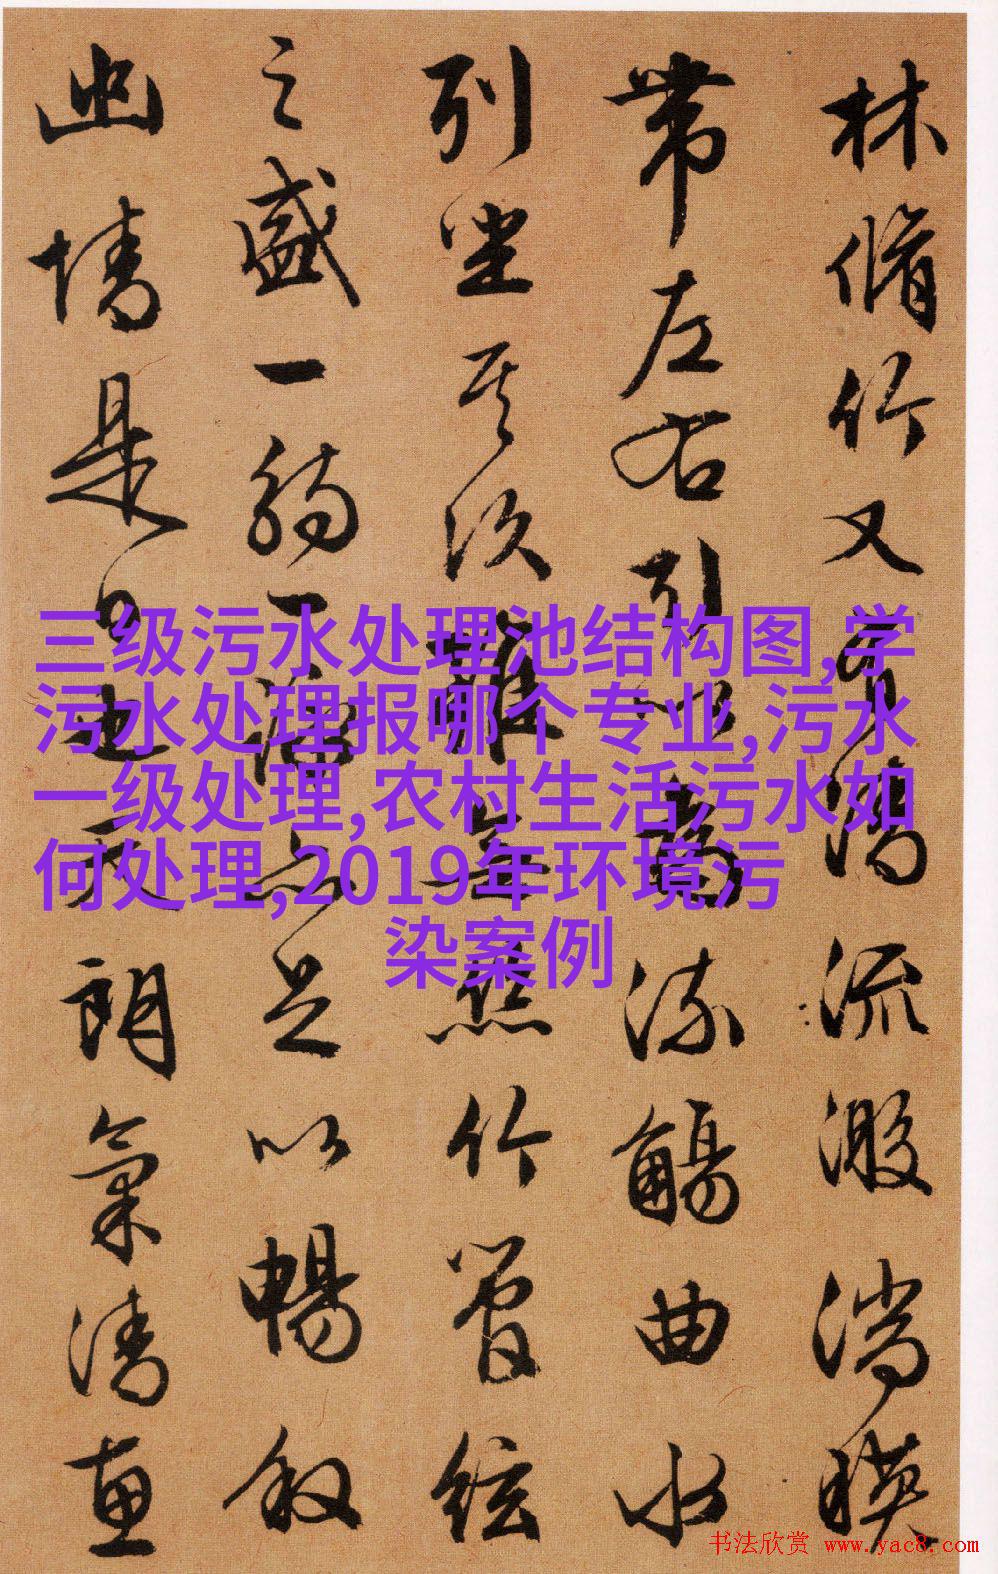 林脩竹又有清流激湍映
帶左右引以為流觴曲水
列坐其次雖無絲竹管絃
之盛一觴一詠亦足以暢敘
幽情是日也天朗氣清惠
三级污水处理池结构图,学
污水处理报哪个专业,污水
一级处理,农村生活污水如
何处理,2019年环境污
染案例
书法欣赏 www.yac8.com